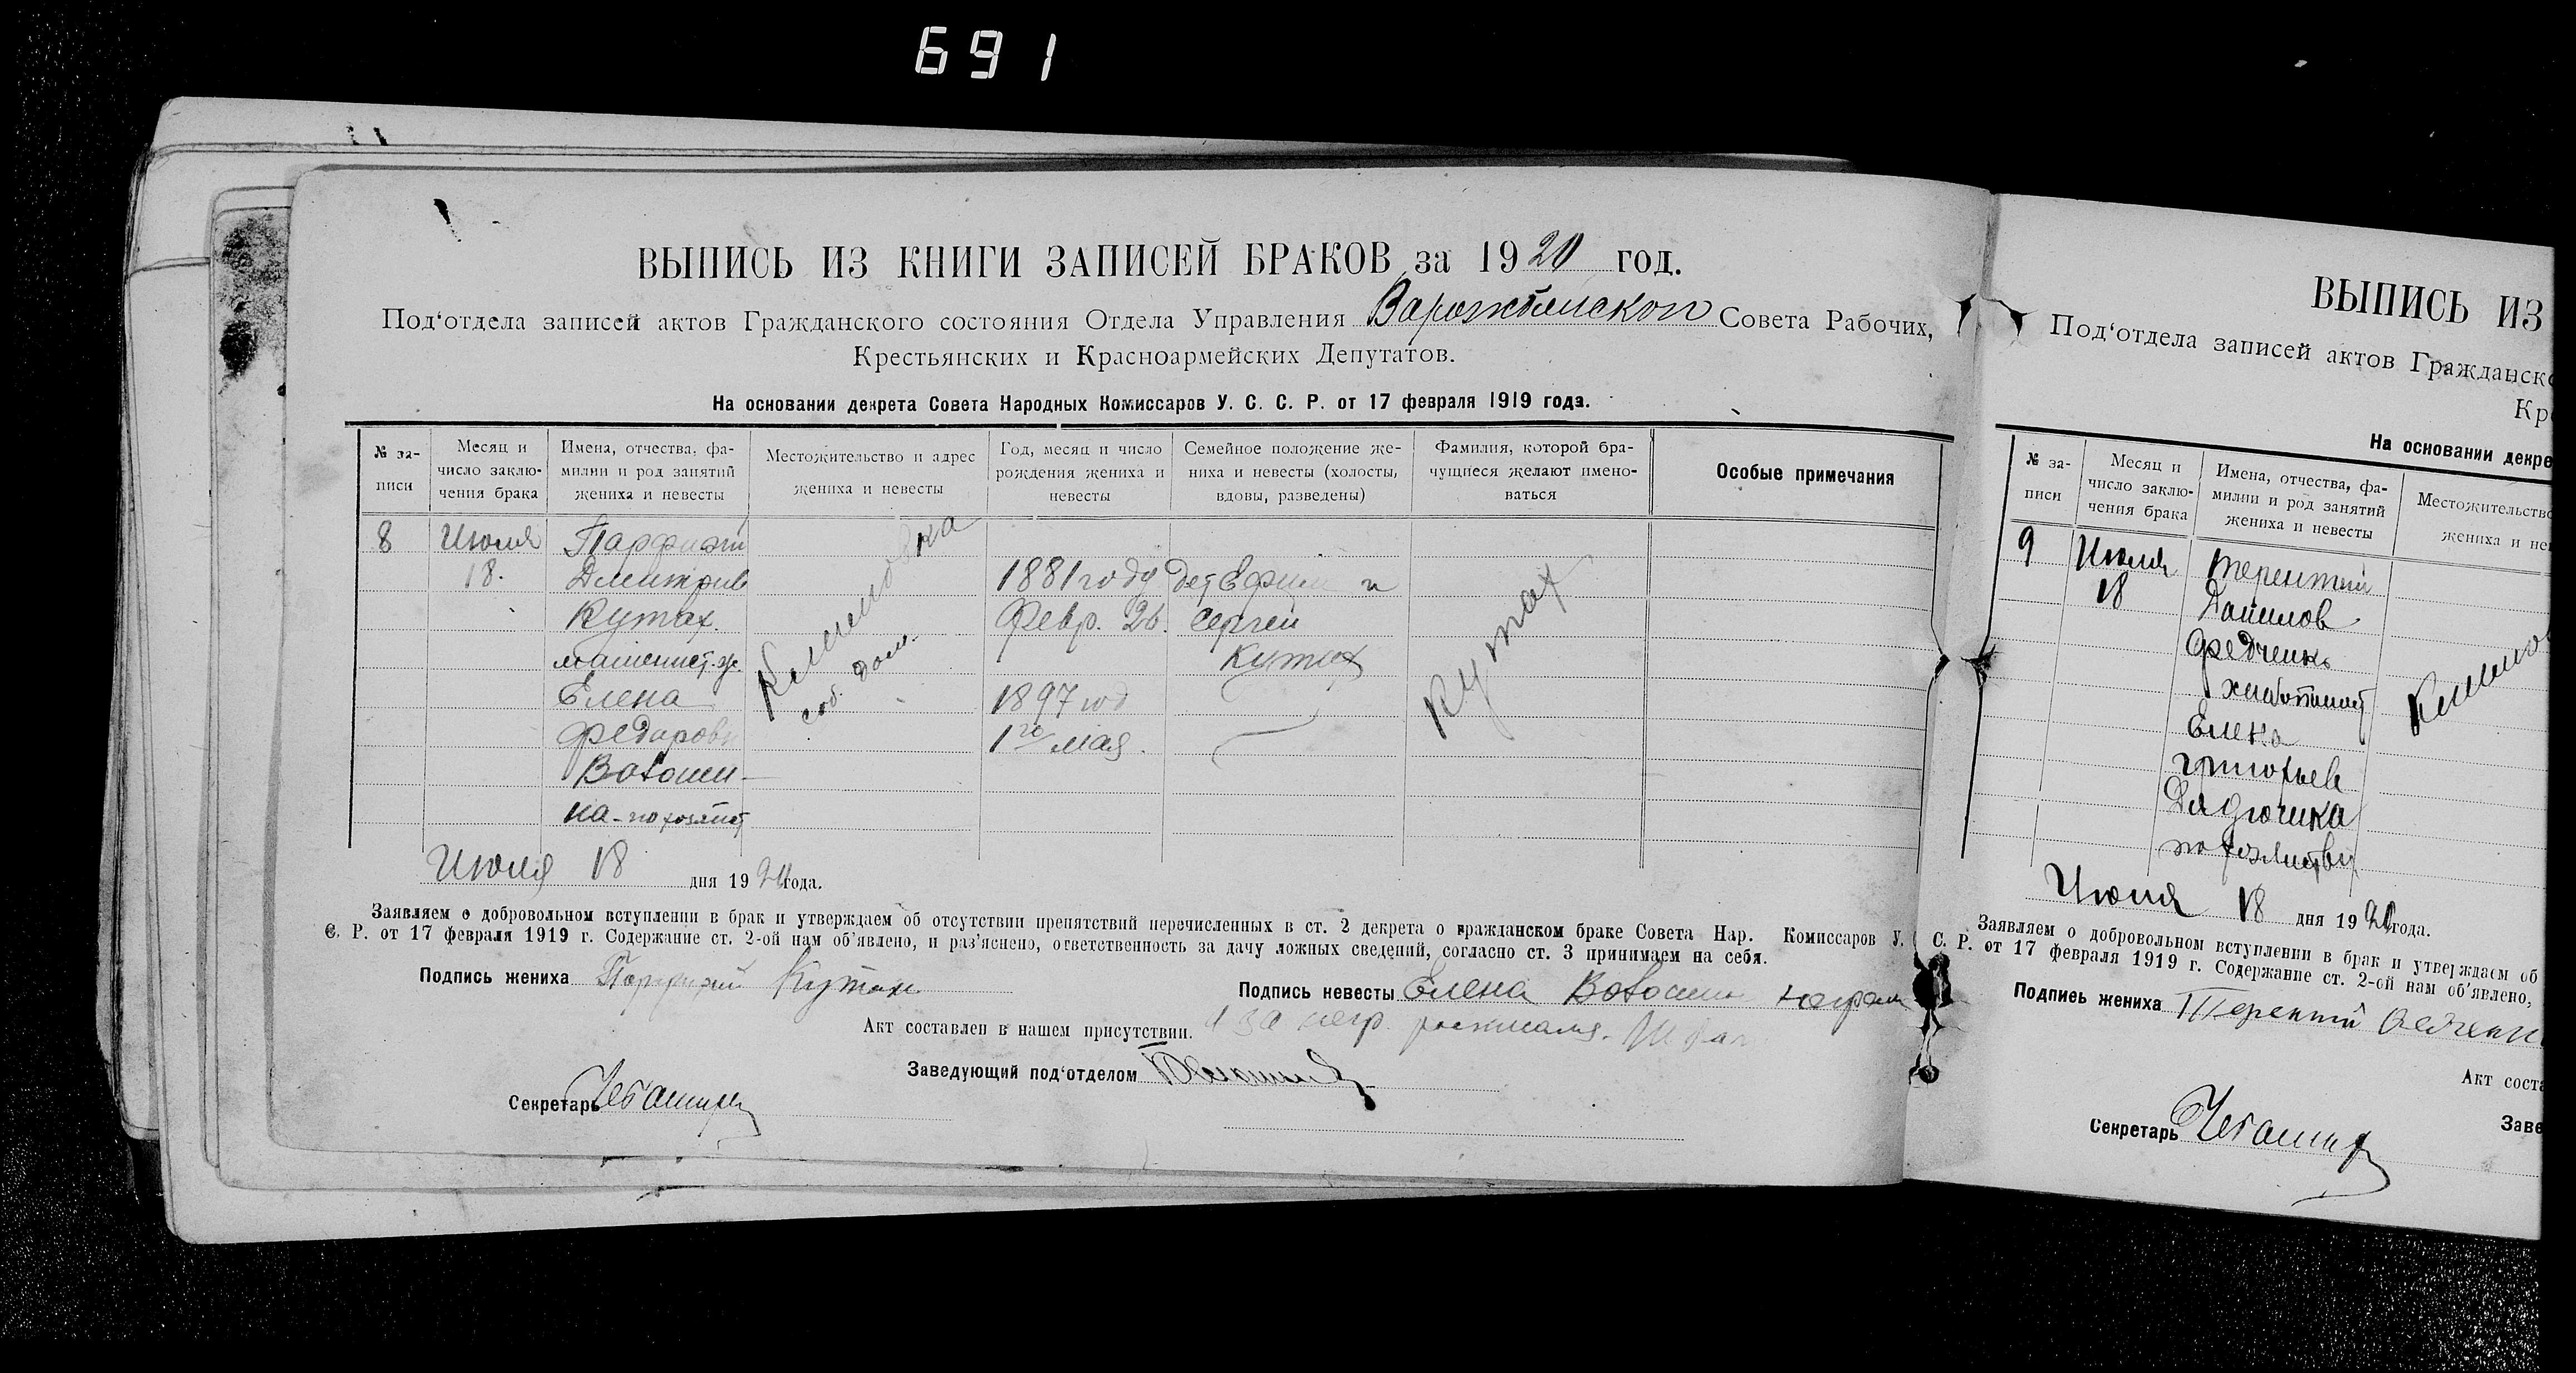 691
ВЫПИСЬ ИЗ КНИГИ ЗАПИСЕЙ БРАКОВ за 1920 год.
Под‘отдела записей актов Гражданского состояния Отдела Управления Совета Рабочих,
Крестьянских и Красноармейских Депутатов.
На основании декрета Совета Народных Комиссаров У. С. С. Р. от 17 февраля 1919 года.
№ за-
писи
Месяц и
число заклю-
чения брака
Имена, отчества, фа-
милии и род занятий
жениха и невесты
Местожительство и адрес
жениха и невесты
Год, месяц и число
рождения жениха и
невесты
Семейное положение же-
ниха и невесты (холосты,
вдовы, разведены)
Фамилия, которой бра-
чущиеся желают имено-
ваться
Особые примечания
8
Июля
18.
Парфирий
Дмитрив
Кутах.
Елена
Федаровн
Волоши-
на-
соб. дом.
1881 году
Февр. 26.
1897 год
1го мая.
дет Ефим и
Сергей
Кутах
Кутах
Июля 18 дня 1920 года.
Заявляем о добровольном вступлении в брак и утверждаем об отсутствии препятствий перечисленных в ст. 2 декрета о гражданском браке Совета Нар. Комиссаров У.
С. Р. от 17 февраля 1919 г. Содержание ст. 2-ой нам об‘явлено, и раз‘яснено, ответственность за дачу ложных сведений, согласно ст. 3 принимаем на себя.
Подпись жениха Кутах
Подпись невесты Елена Волошин неграм
Акт составлен в нашем присутствии. а за негр.
Заведующий под‘отделом
Секретарь
ВЫПИСЬ ИЗ
Под‘отдела записей актов Гражданск
Кр
На основании декре
№ за-
писи
Месяц и
число заклю-
чения брака
Имена, отчества, фа-
милии и род занятий
жениха и невесты
Местожительство
жениха и не
9
Июля
18
Терентий
Данилов
Федченко
Елена
Григорьев
по хозяйству
Июля 18 дня 1920 года.
Заявляем о добровольном вступлении в брак и утверждаем об
С. Р. от 17 февраля 1919 г. Содержание ст. 2-ой нам об‘явлено,
Подпись жениха Терентий
Акт соста
Заве
Секретарь